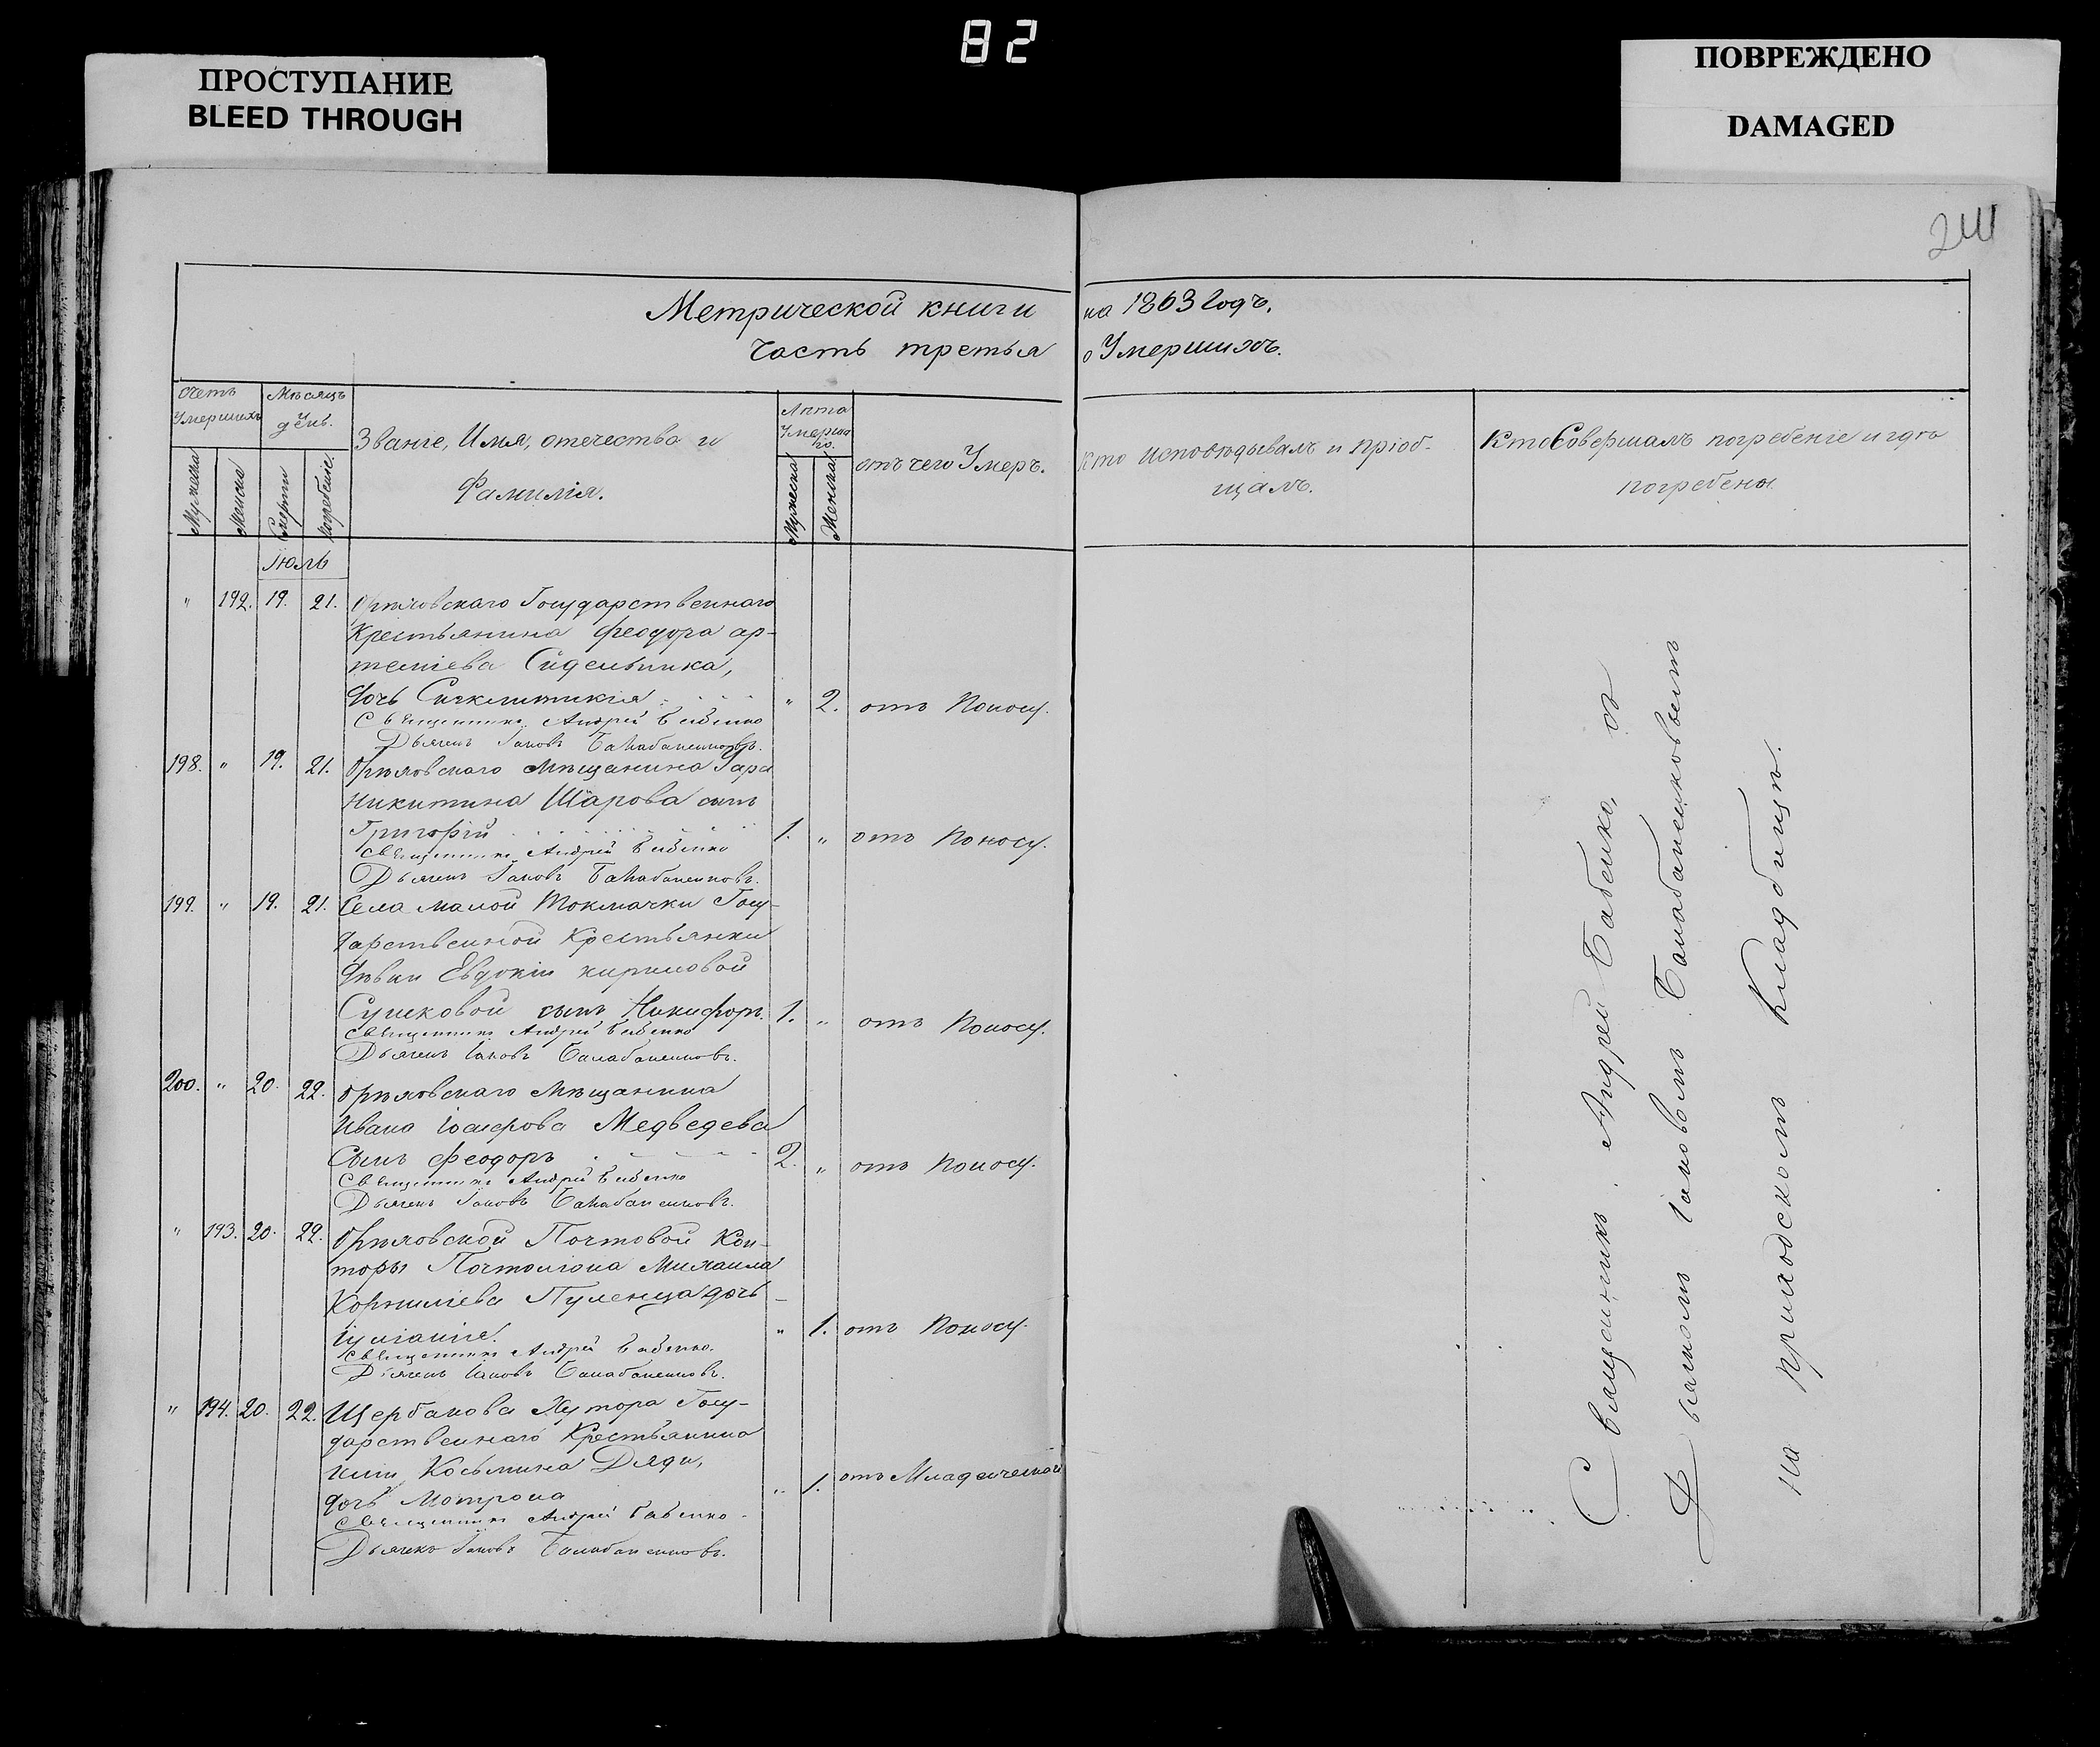 82
ПРОСТУПАНИЕ
BLEED THROUGH
ПОВРЕЖДЕНО
DAMAGED
241
Метрической книги на 1863 Годъ.
Часть третья о Умершихъ.
Счетъ Умершихъ
Мѣсяцъ день.
Званіе, Имя, отечество и Фамилія.
Лѣта Умершаго.
отъ чего Умеръ.
Кто исповѣдывалъ и пріоб-
щалъ.
Кто Совершалъ погребеніе и гдѣ
погребены
Мужеска
Женска
Смерти
погребенія
Мужеска
Женска
Іюль
" 192. 19. 21. Орѣховскаго Государственнаго
Крестьянина Феодора ар-
темієва Сидельника,
дочь Сигклитикія " 2. отъ Поносу.
Священникъ Андрей Бабенко
Дьячекъ Іаковъ Балабаненковъ.
198. " 19. 21. Орѣховскаго Мѣщанина
Никитина Шарова сынъ
Григорій 1. " отъ Поносу.
Священникъ Андрей Бабенко
Дьячекъ Іаковъ Балабаненковъ.
199. " 19. 21. Села малой Токмачки Госу-
дарственной Крестьянки
дѣвки Евдокіи кириловой
сынъ Никифоръ. 1. " отъ Поносу.
Священникъ Андрей Бабенко
Дьячекъ Іаковъ Балабаненковъ.
200. " 20. 22. Орѣховскаго Мѣщанина
Ивана Медведева
Сынъ Феодоръ 2. " отъ Поносу.
Священникъ Андрей Бабенко
Дьячекъ Іаковъ Балабаненковъ.
" 193. 20. 22. Орѣховской Почтовой Кон-
торы Почталіона Михаила
Корниліева дочь
Іуліанія. " 1. отъ Поносу.
Священникъ Андрей Бабенко.
Дьячекъ Іаковъ Балабаненковъ.
" 194. 20. 22. Щербакова Хутора Госу-
дарственнаго Крестьянина
Козьмина Дяди,
дочь Мотрона " 1. отъ Младенческой
Священникъ Андрей Бабенко
Дьячекъ Іаковъ Балабаненковъ.
Священникъ Андрей Бабенко, съ
Дьячкомъ Іаковомъ Балабаненковымъ
на приходскомъ Кладбищѣ.